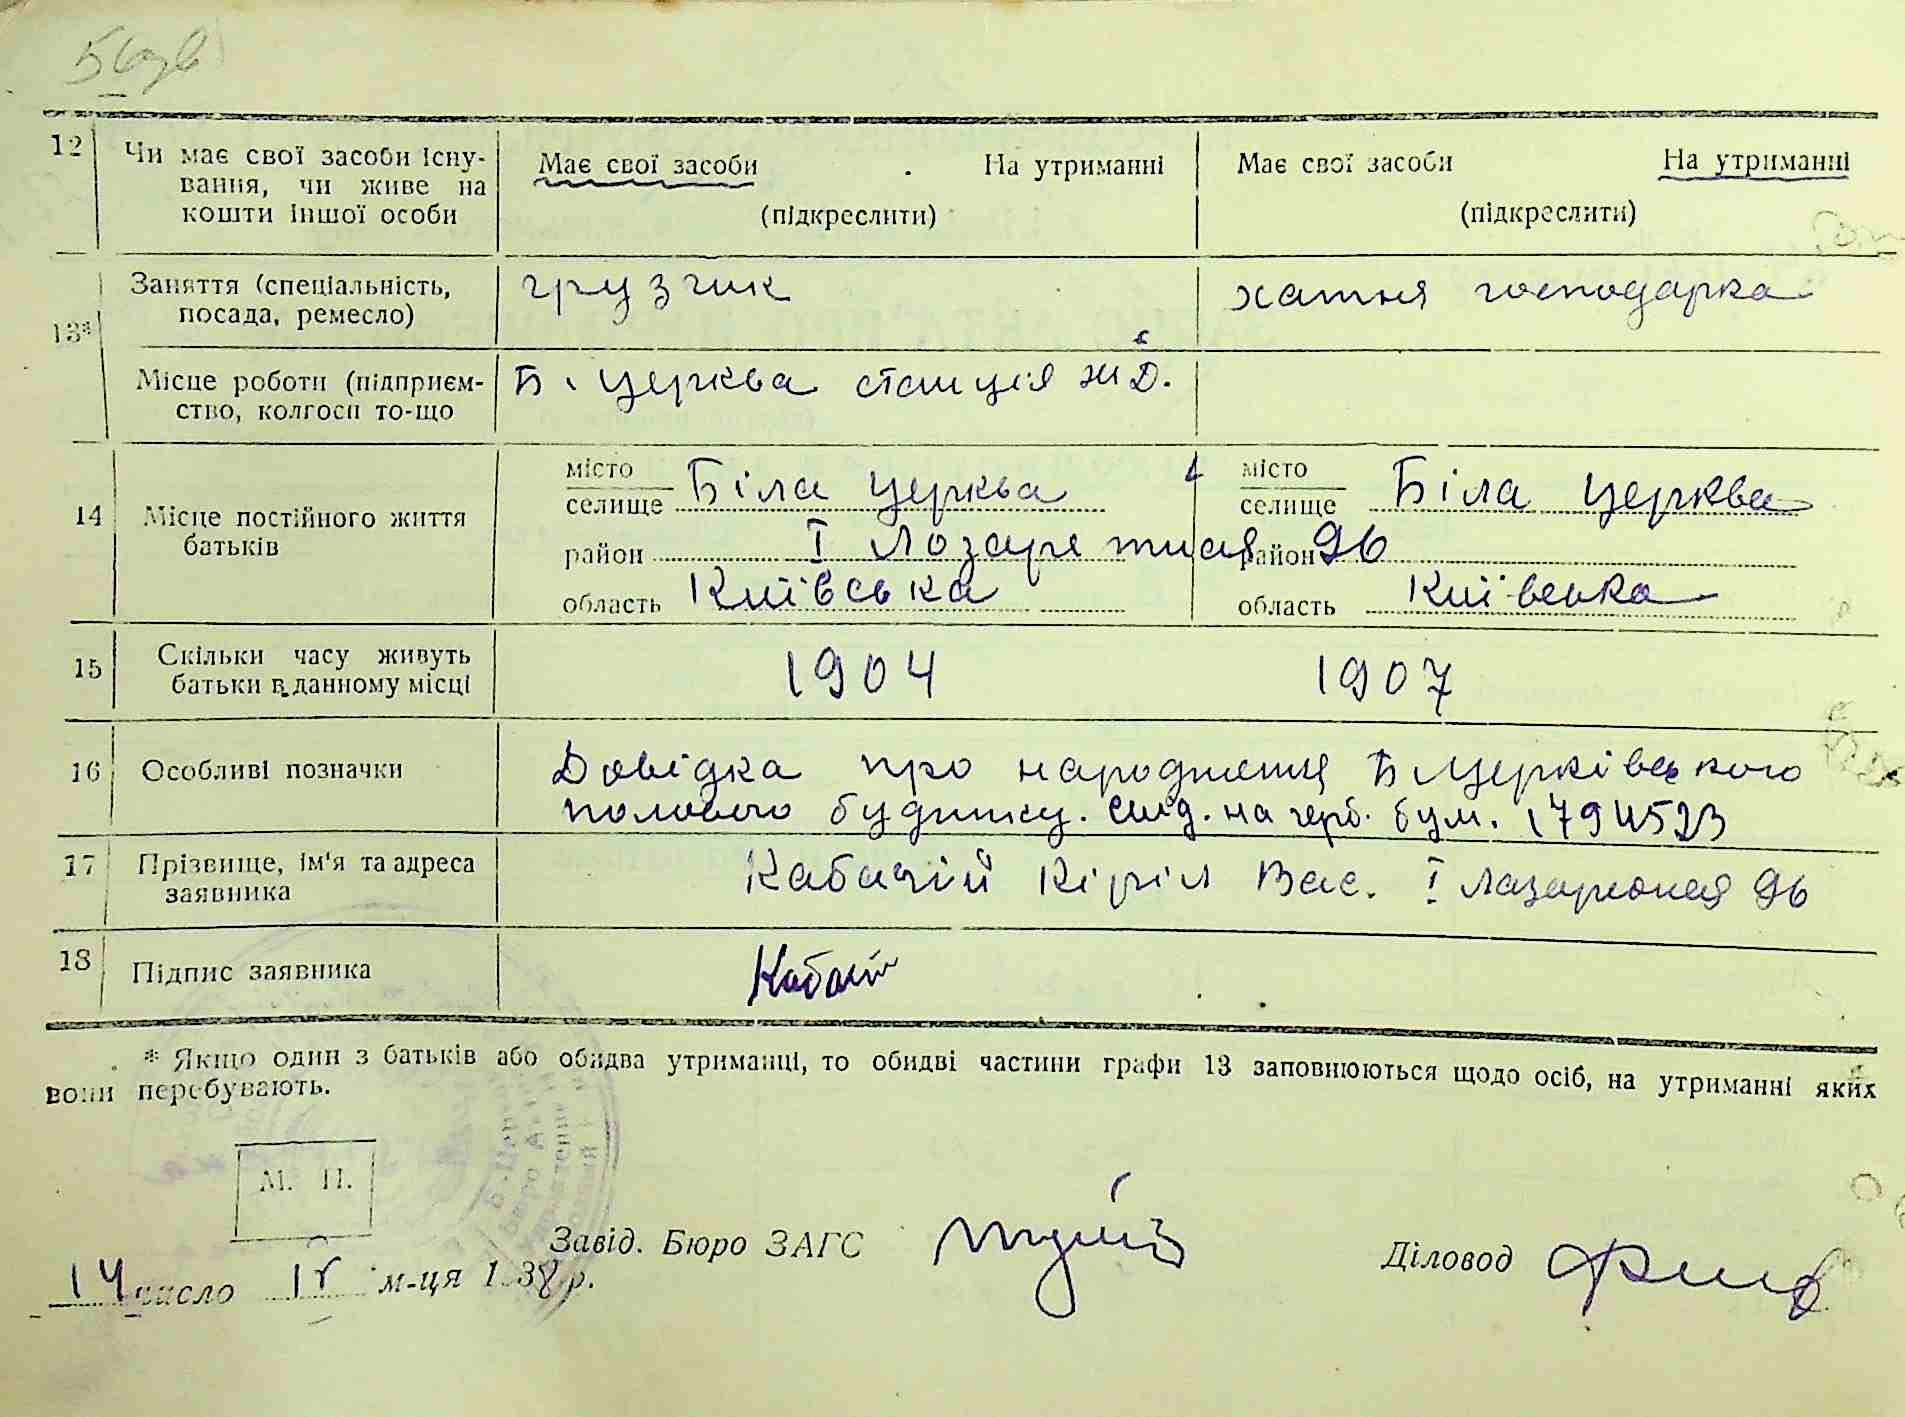 12 Чи має свої засоби існу-
вання, чи живе на
кошти іншої особи
Має свої засоби На утриманні
(підкреслити)
Має свої засоби На утриманні
(підкреслити)
13* Заняття (спеціальність,
посада, ремесло)
грузчик
хатня господарка
Місце роботи (підприєм-
ство, колгосп то-що
Б. Церква станція ж Д.
14 Місце постійного життя
батьків
місто
селище Біла Церква
район І Лозаретная 96
область Київська
місто
селище Біла Церква
район
область Київська
15 Скільки часу живуть
батьки в данному місці
1904 1907
16 Особливі позначки
Довідка про народження Б Церківського
полового будинку. свід. на герб. бум. 1794523
17 Прізвище, ім'я та адреса
заявника
Кабачій Кіріл Вас. І Лазаретная 96
18 Підпис заявника
* Якщо один з батьків або обидва утриманці, то обидві частини графи 13 заповнюються щодо осіб, на утриманні яких
вони перебувають.
М. П.
Завід. Бюро ЗАГС
Діловод
14 число м-ця 1938 р.